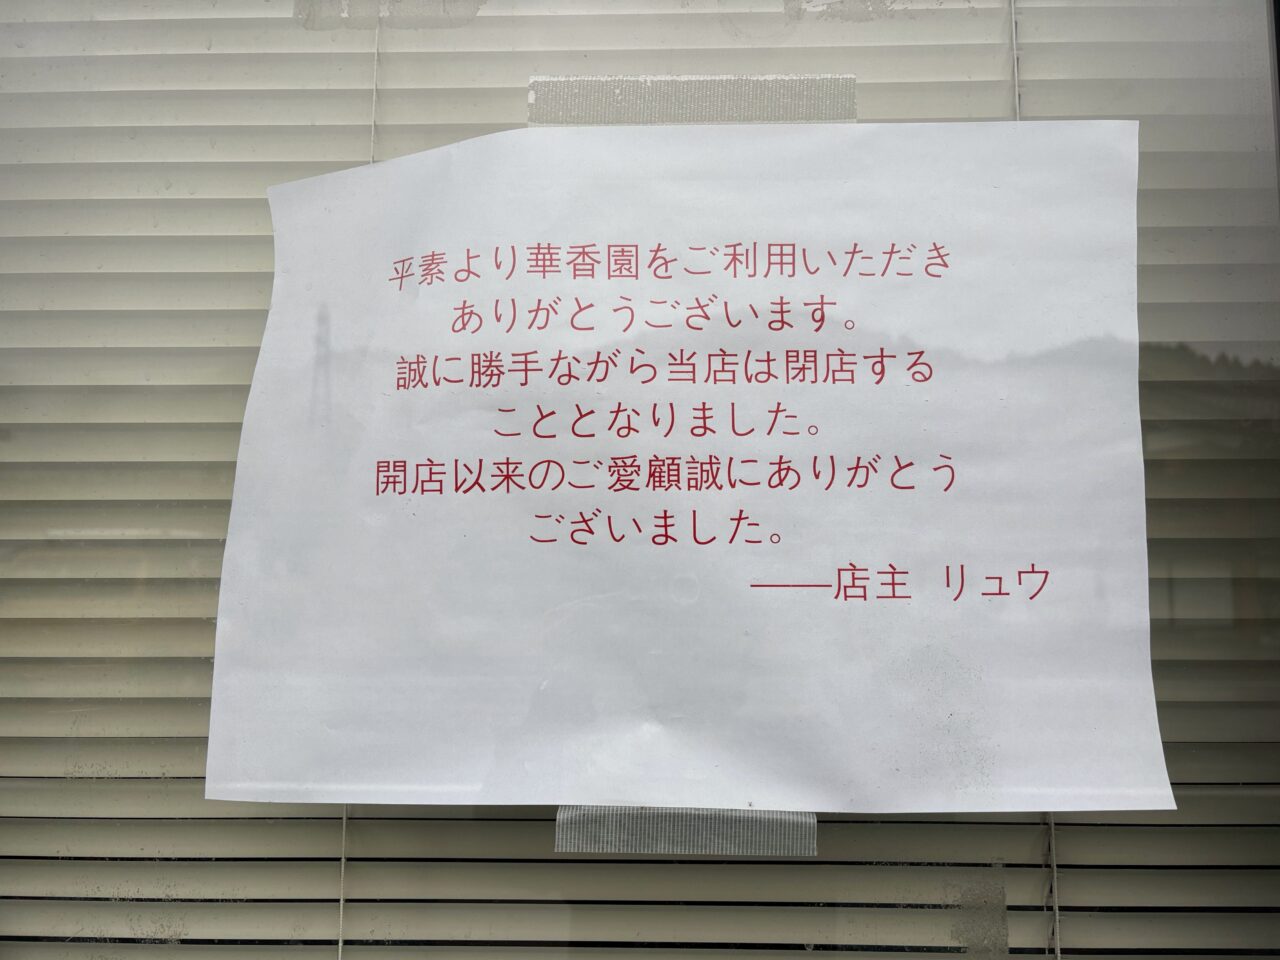 平素より華香園をご利用いただき
ありがとうございます。
誠に勝手ながら当店は閉店する
こととなりました。
開店以来のご愛顧誠にありがとう
ございました。
——店主 リュウ